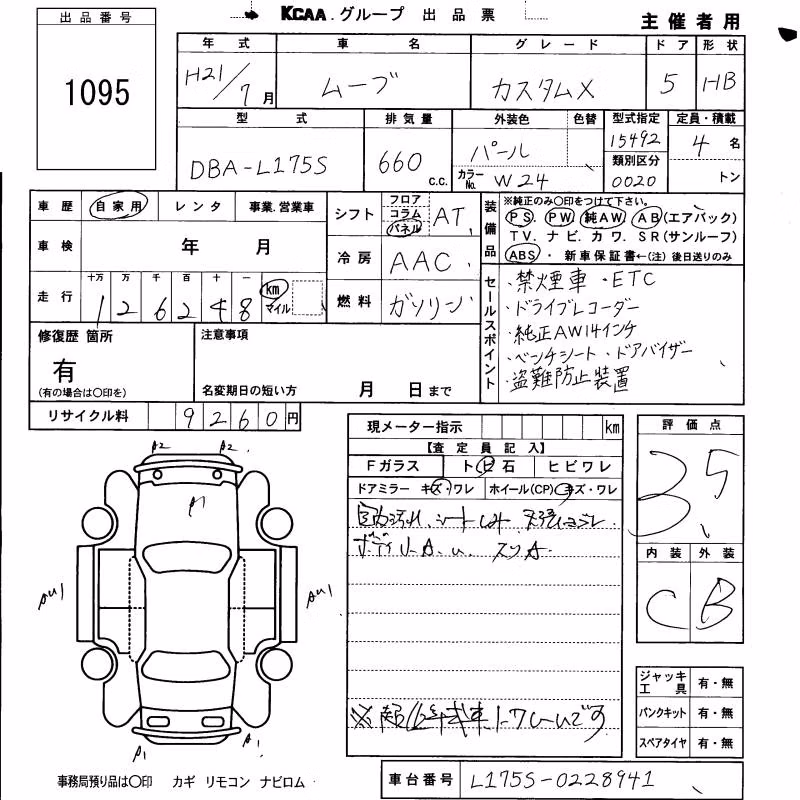 KCAA.グループ 出品票
主催者用
出品番号
1095
年式 車名 グレード ドア 形状
H21/7月 ムーブ カスタムX 5 HB
型式 排気量 外装色 色替 型式指定 定員・積載
DBA-L175S 660 c.c. パール 15492 4名
カラーNo. W24 類別区分 0020 トン
車歴 自家用 レンタ 事業.営業車
シフト フロア コラム パネル AT
装備品 ※純正のみ〇印をつけて下さい。
PS. PW. 純AW. AB(エアバック)
TV. ナビ. カワ. SR(サンルーフ)
ABS・新車保証書←(注)後日送りのみ
車検 年 月
冷房 AAC
走行 十万 万 千 百 十 一
126248 km マイル
燃料 ガソリン
セールスポイント
・禁煙車・ETC
・ドライブレコーダー
・純正AW14インチ
・ベンチシート・ドアバイザー
・盗難防止装置
修復歴 箇所
有
(有の場合は〇印を)
注意事項
名変期日の短い方 月 日まで
リサイクル料 9260円
現メーター指示 km
【査定員記入】
Fガラス トビ石 ヒビワレ
ドアミラー キズ・ワレ ホイール(CP) キズ・ワレ
評価点
3.5
内装 外装
C B
A2 A2
A1
AU1 AU1
A1 A1
ジャッキ工具 有・無
パンクキット 有・無
スペアタイヤ 有・無
事務局預り品は〇印 カギ リモコン ナビロム
車台番号 L175S-0228941